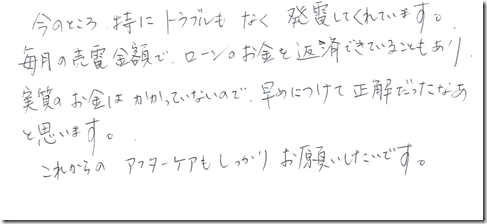 今のところ 特に トラブルも なく 発電してくれています。
毎月の売電金額で、ローンのお金を返済できていることもあり、
実質のお金はかかっていないので、早めにつけて正解だったなあ
と思います。
これからの アフターケアもしっかり お願いしたいです。